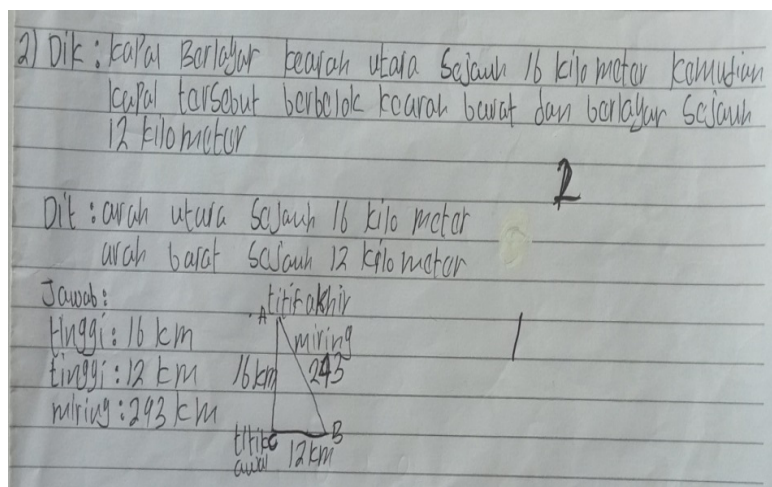 2) Dik : kapal Berlayar kearah utara Sejauh 16 kilo meter kemudian
kapal tersebut berbelok kearah barat dan berlayar sejauh
12 kilometer
2
Dit : arah utara Sejauh 16 kilo meter
arah barat sejauh 12 kilo meter
Jawab :
titik akhir
A
tinggi : 16 km
miring
tinggi : 12 km
16 km
243
1
miring : 293 km
titik
C
B
awal
12 km